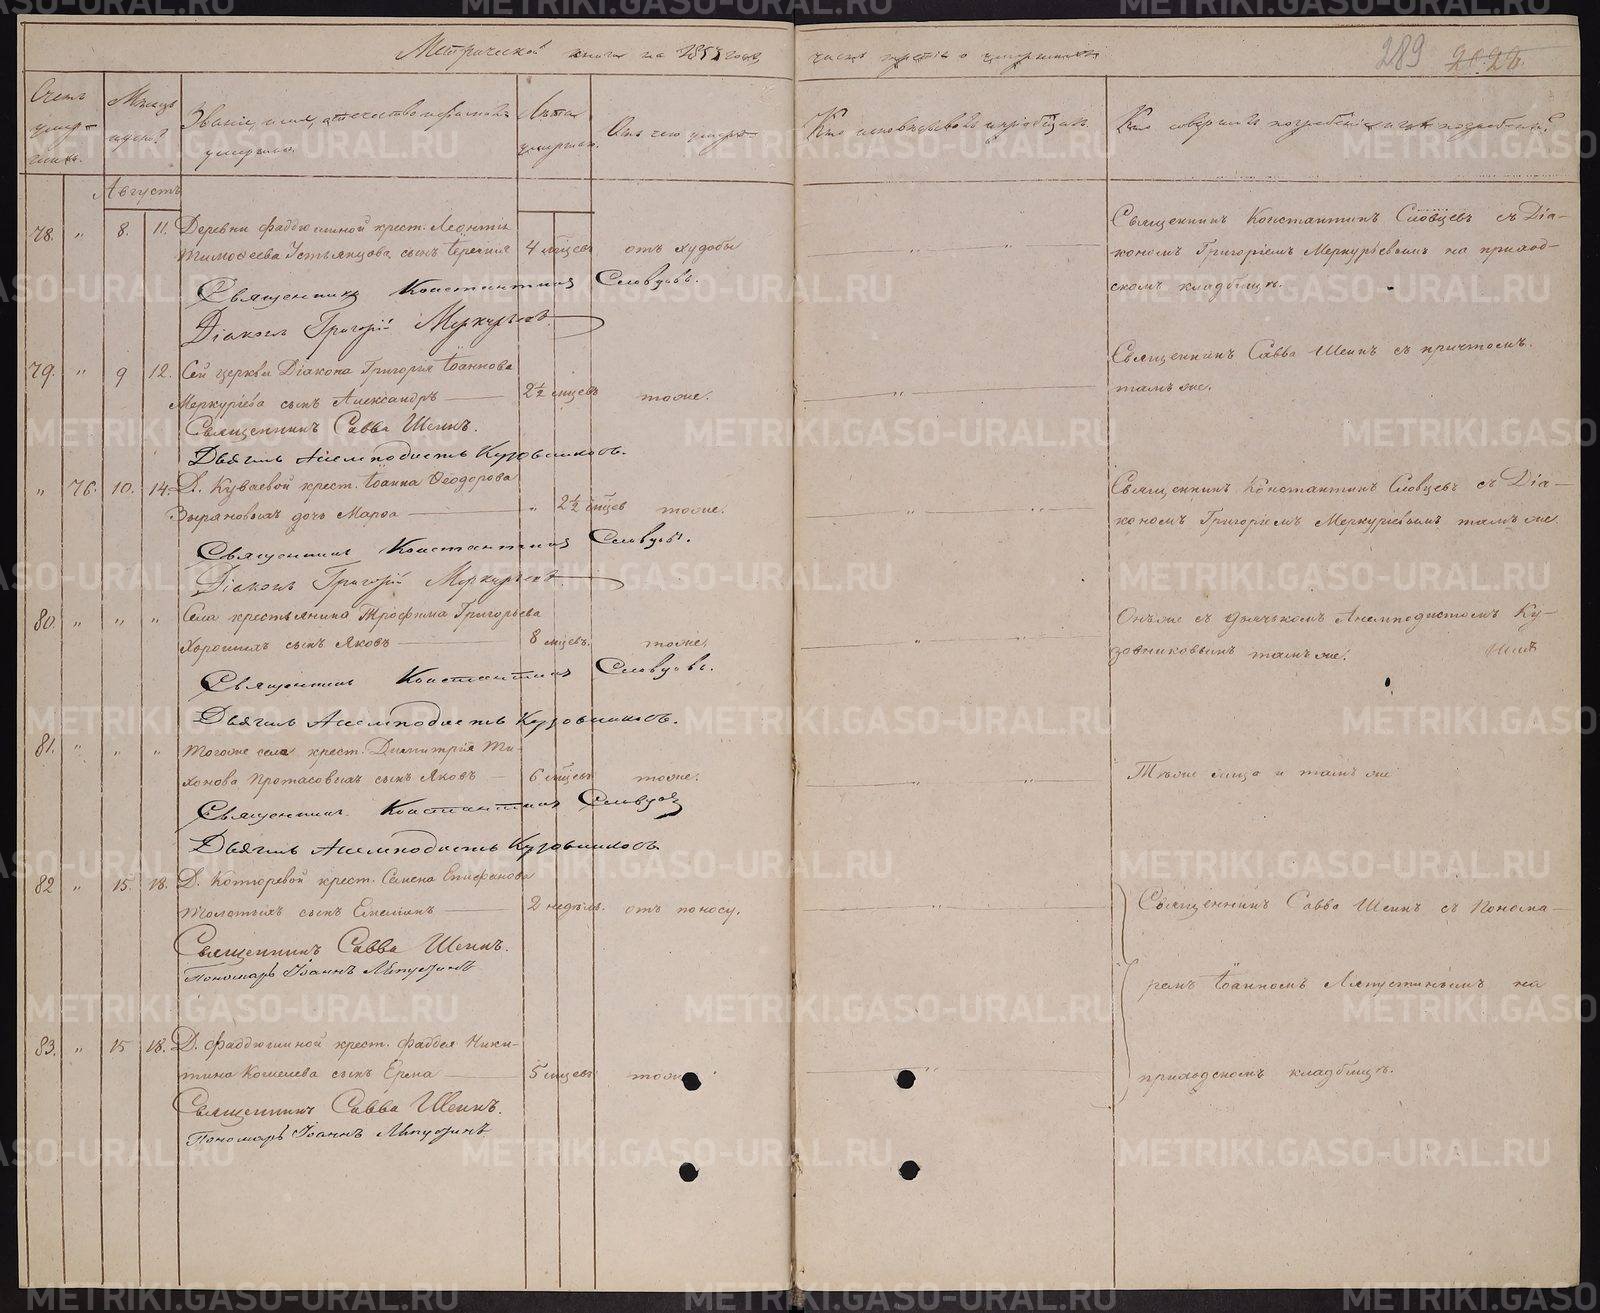 METRIKI.GASO-URAL.RU
Метрической книги на 185 года
часть третія о умершихъ
289
Счетъ умер-шихъ.
Мѣсяцъ и день?
Званіе, имя, отчество и фамилія умершаго.
Лѣта умершаго.
Отъ чего умеръ
Кто исповѣдывалъ и пріобщалъ.
Кто совершалъ погребеніе и гдѣ погребены?
Августъ
78. " 8. 11. Деревни Фаддюшиной крест. Леонтія
Тимоѳеева Устьянцова сынъ 4 мѣсцевъ отъ худобы
Священникъ Константинъ Словцовъ с Діа-
кономъ Григоріемъ Меркурьевымъ на приход-
скомъ кладбищѣ.
Священникъ Константинъ Словцовъ.
Діаконъ Григорій Меркурьевъ
79. " 9 12. Сей церкви Діакона Григорія Іоаннова
Меркуріева сынъ Александръ 2½ мѣсцевъ тоже.
Священникъ Савва Шеинъ съ причтомъ.
тамъ же.
Священникъ Савва Шеинъ.
Дьячекъ Анемподистъ Кузовниковъ.
" 76. 10. 14. Д. Куваевой крест. Іоанна Ѳеодорова
Зыряновыхъ дочь Марѳа " 2½ мѣсцев тоже.
Священникъ Константинъ Словцевъ съ Діа-
кономъ Григоріемъ Меркуріевымъ тамъ же.
Священникъ Константинъ Словцовъ.
Діаконъ Григорій Меркурьевъ
80. " " " Села крестьянина Трофима Григорьева
Хорошихъ сынъ Яковъ 8 мѣсцевъ. тоже.
Онъже съ дьячкомъ Анемподистомъ Ку-
зовниковымъ тамъ же.
Священникъ Константинъ Словцовъ.
Дьячекъ Анемподистъ Кузовниковъ.
81. " " " Тогоже села крест. Димитрія Ти-
хонова Протасовыхъ сынъ Яковъ 6 мѣсцевъ тоже.
Тѣже лица и тамъ же
Священникъ Константинъ Словцовъ
Дьячекъ Анемподистъ Кузовниковъ
82 " 15. 18. Д. Котюревой крест. Семена Епифанова
Толстыхъ сынъ Емеліанъ 2 недѣль. отъ поносу.
Священникъ Савва Шеинъ съ Понома-
ремъ Іоанномъ Ляпустинымъ на
приходскомъ кладбищѣ.
Священникъ Савва Шеинъ.
Пономарь Іоаннъ Ляпустинъ
83. " 15 18. Д. Фаддюшиной крест. Фаддея Ники-
тина Кошелева сынъ Ерма 5 мѣсцевъ тоже
Священникъ Савва Шеинъ.
Пономарь Іоаннъ Ляпустинъ